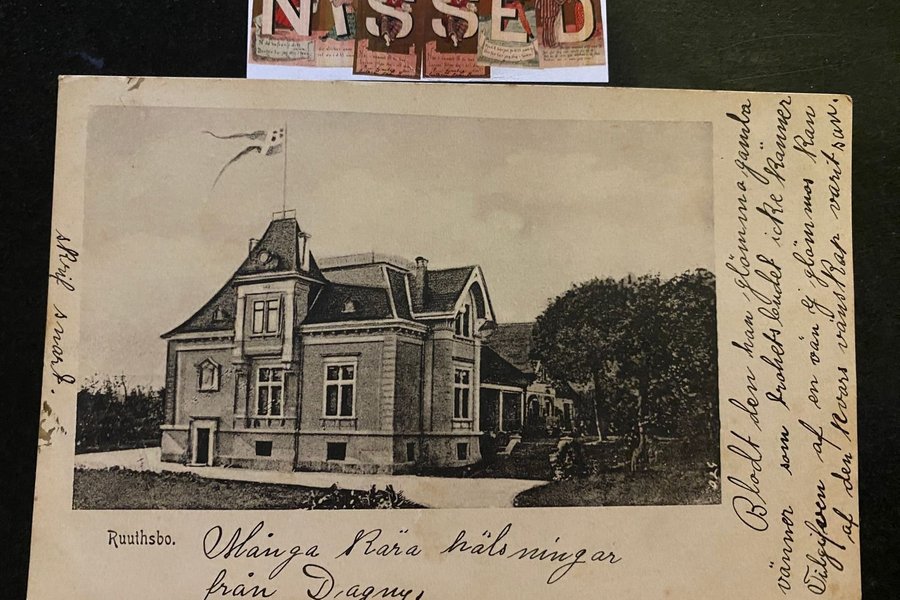 NISSED
skrif snart.
Ruuthsbo.
Många kära hälsningar
från Dagny,
Blodt den kan glömma gamla
vänner som trohetsbandet icke känner
Tilgifven af en vän ej glömmos kan
af den hvars vänskap varit san.